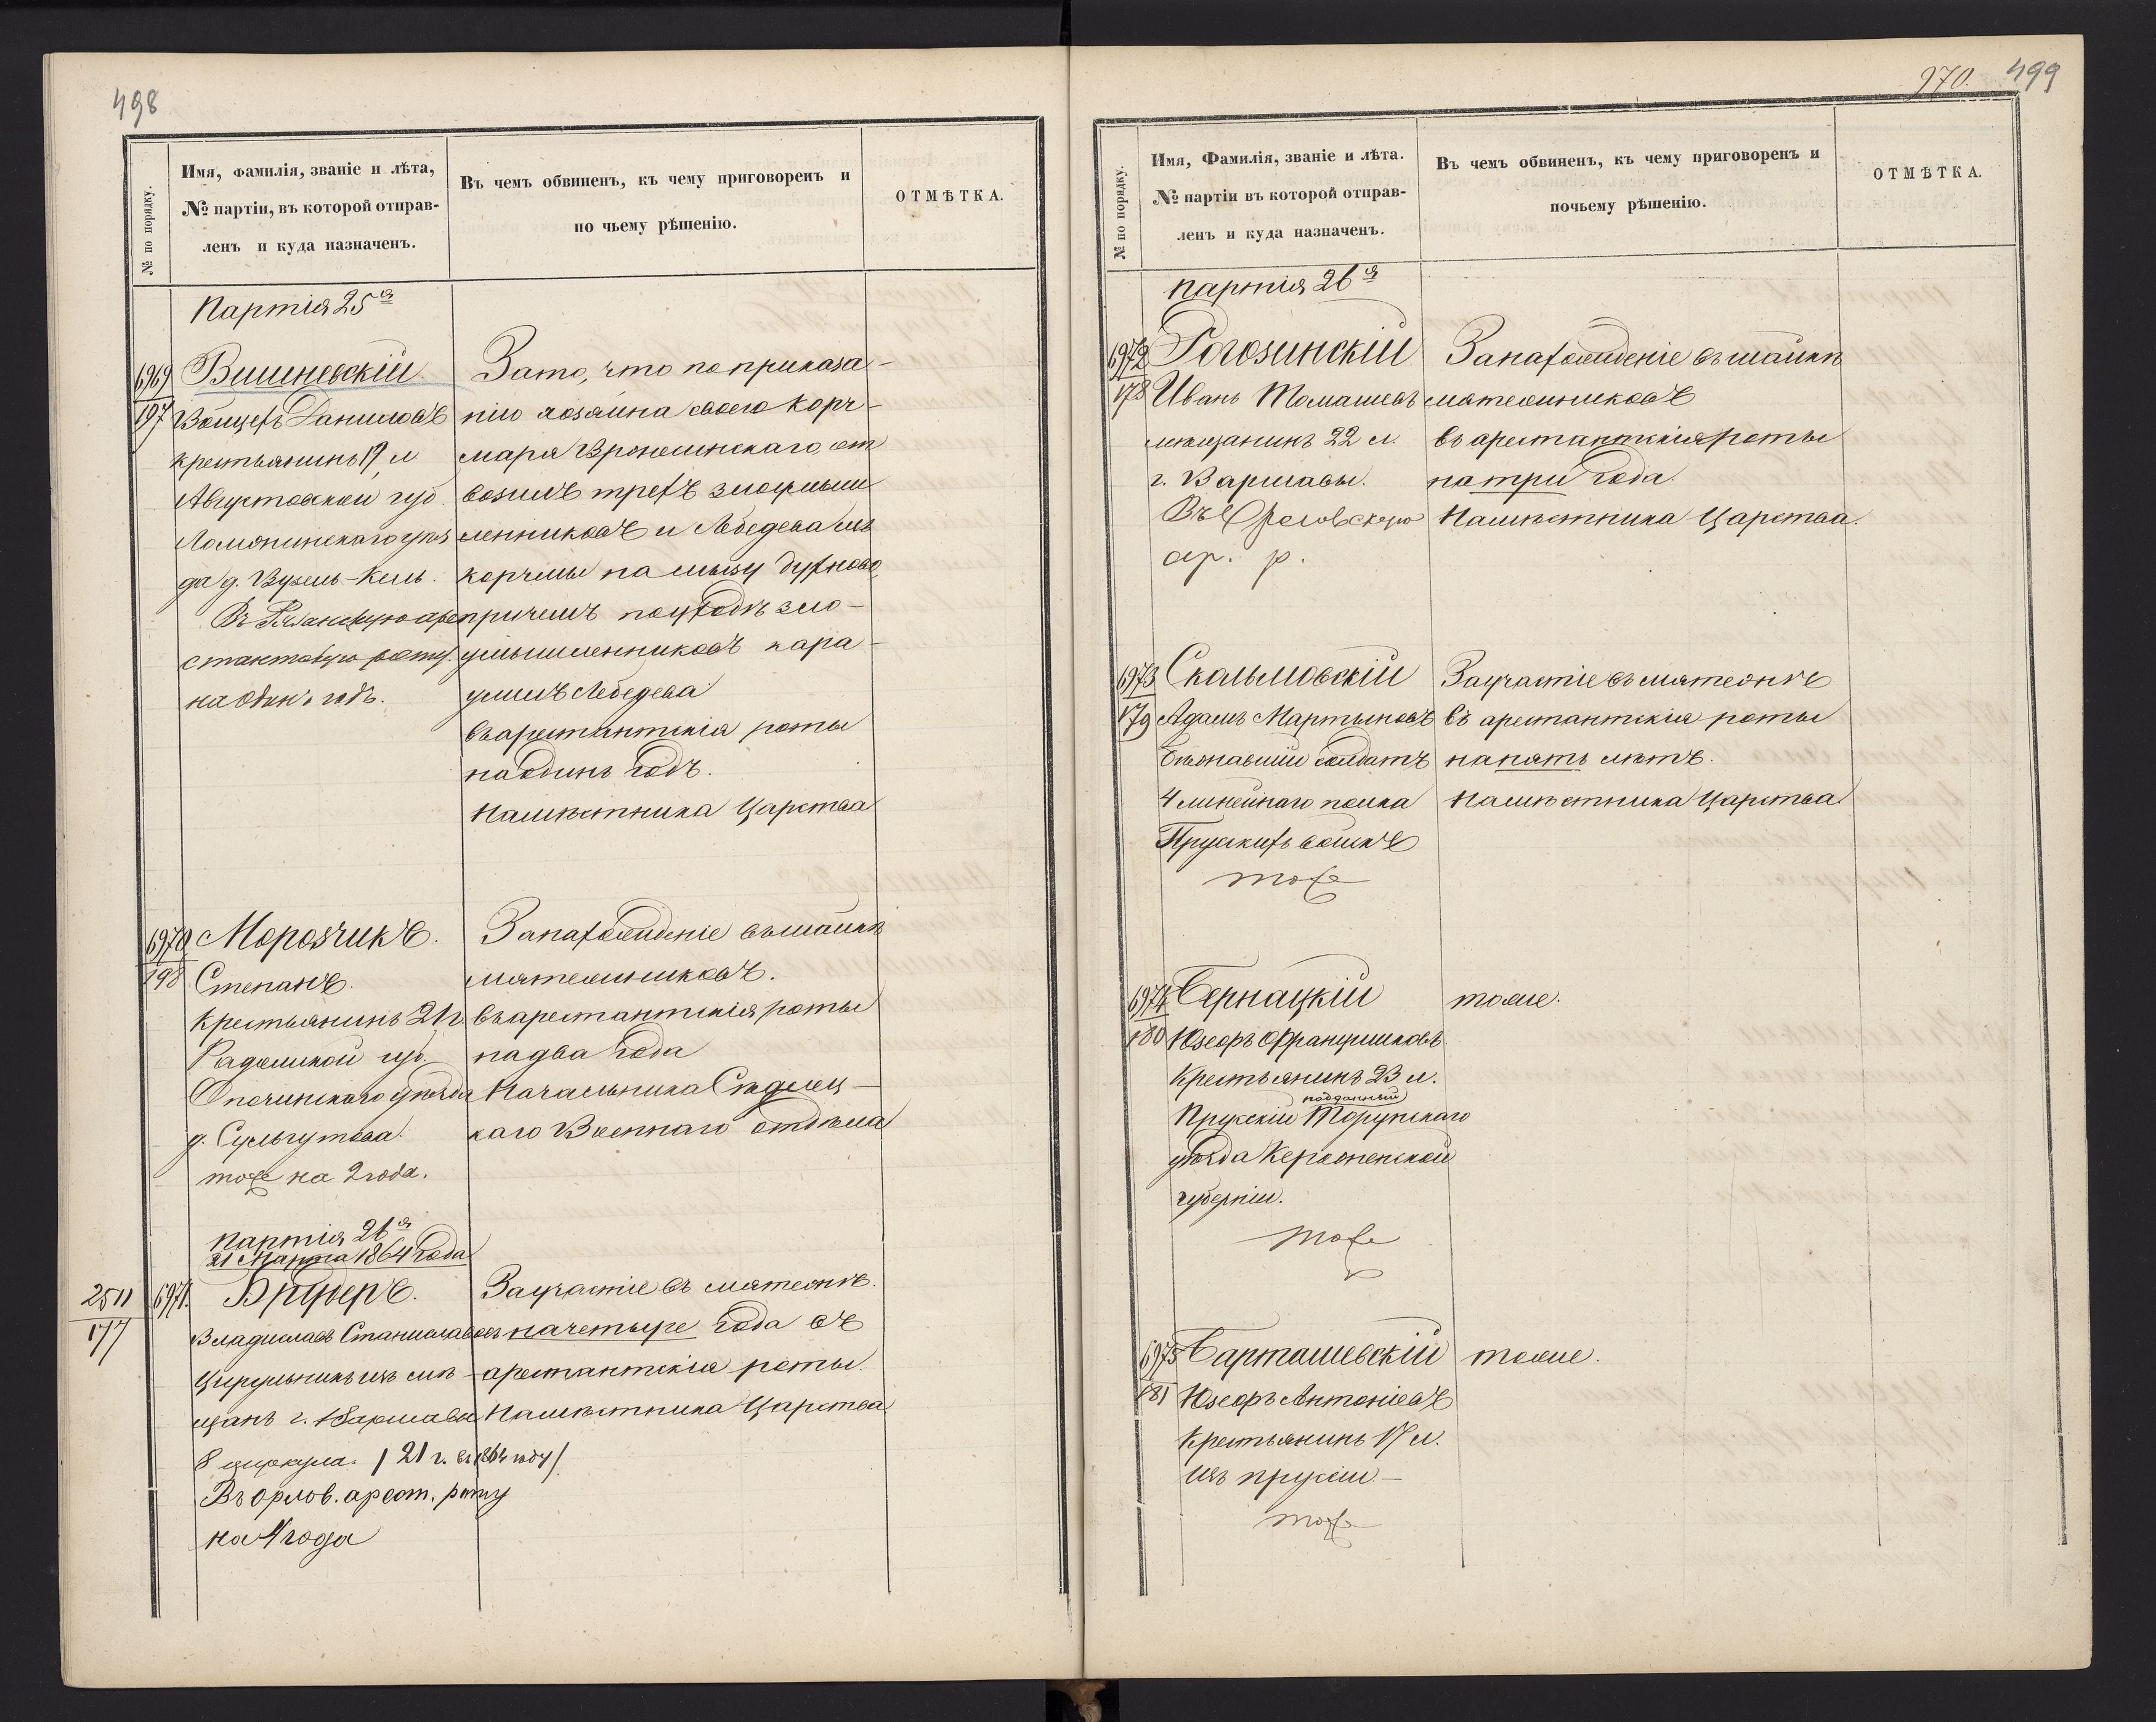 498
№ по порядку.
Имя, фамилія, званіе и лѣта,
№ партіи, въ которой отправ-
ленъ и куда назначенъ.
Въ чемъ обвиненъ, къ чему приговоренъ и
по чьему рѣшенію.
ОТМѢТКА.
Партія 25ая
6969
197
Вишневскій
Войцехъ Даниловъ
крестьянинъ 19 л
Августовской губ.
Ломжинскаго уѣз
да д.
Въ Рязанскую аре
стантскую роту
на одинъ годъ.
За то, что по приказа-
нію хозяина своего корч-
маря Вронжинскаго, от
возилъ трехъ злоумыш
ленниковъ и Лебедева изъ
корчмы на мызу
причемъ
умышленниковъ кара-
улилъ Лебедева
въ арестантскія роты
на одинъ годъ.
Намѣстника Царства
6970
198
Морозчикъ.
Степанъ.
Крестьянинъ 21 г.
Радомской губ.
Опочинскаго уѣзда
д.
тоже на 2 года.
За нахожденіе въ шайкѣ
мятежниковъ.
въ арестантскія роты
на два года
Начальника Сѣдлец-
каго Военнаго отдѣла
партія 26ая
21 Марта 1864 года
2511
177
6971.
Владиславъ Станиславовъ
Цирульникъ изъ мѣ-
щанъ г. Варшавы
8 циркула. / 21 г. въ 1864 году /
Въ орлов. арест. роту
на 4 года
За участіе въ мятежѣ.
на четыре года въ
арестантскія роты.
Намѣстника Царства
970.
499
№ по порядку.
Имя, Фамилія, званіе и лѣта.
№ партіи въ которой отправ-
ленъ и куда назначенъ.
Въ чемъ обвиненъ, къ чему приговоренъ и
почьему рѣшенію.
ОТМѢТКА.
партія 26ая
6972
178
Рогозинскій
Иванъ Томашевъ
мѣщанинъ 22 л.
г. Варшавы.
Въ Орловскую
ар. р.
За нахожденіе въ шайкѣ
мятежниковъ
въ арестантскія роты
на три года.
Намѣстника Царства.
6973
179
Скальмовскій
Адамъ Мартыновъ
бѣжавшій солдатъ
4 линейнаго полка
Прускихъ войскъ
тоже
За участіе въ мятежѣ
въ арестантскія роты
на пять лѣтъ.
Намѣстника Царства.
6974
180
Бернацкій
Юзефъ Францишковъ.
Крестьянинъ 23 л.
подданный
Прускій Торунскаго
уѣзда
губерніи.
тоже
тоже.
6975
181
Барташевскій
Юзефъ Антоніевъ
Крестьянинъ 17 л.
изъ прусіи. —
тоже
тоже.